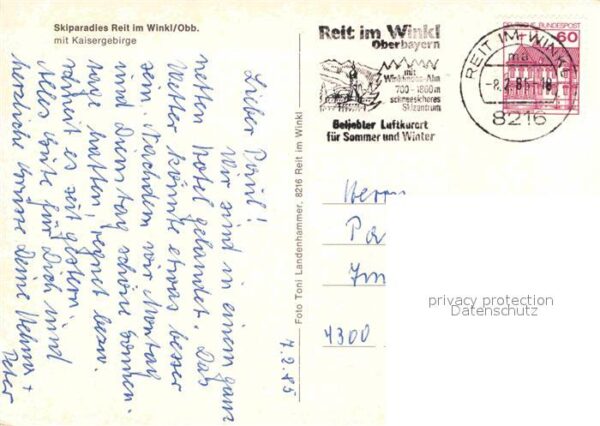 Skiparadies Reit im Winkl/Obb.
mit Kaisergebirge
Lieber Paul!
Wir sind in einem ganz
netten Hotel gelandet. Das
Wetter könnte etwas besser
sein. Nachdem wir Montag
und Dienstag schöne Sonnen-
tage hatten, regnet bzw.
schneit es seit gestern.
Alles Gute für Dich und
herzliche Grüsse Deine Helma +
Peter
7.2.85
Foto Toni Landenhammer, 8216 Reit im Winkl
Reit im Winkl
Oberbayern
mit
Winklmoos-Alm
700-1800m
schneesicheres
Skizentrum
Beliebter Luftkurort
für Sommer und Winter
REIT IM WINKL
ma
-8.2.85-18
8216
DEUTSCHE BUNDESPOST
60
Herrn
Pa
Im
4300
privacy protection
Datenschutz